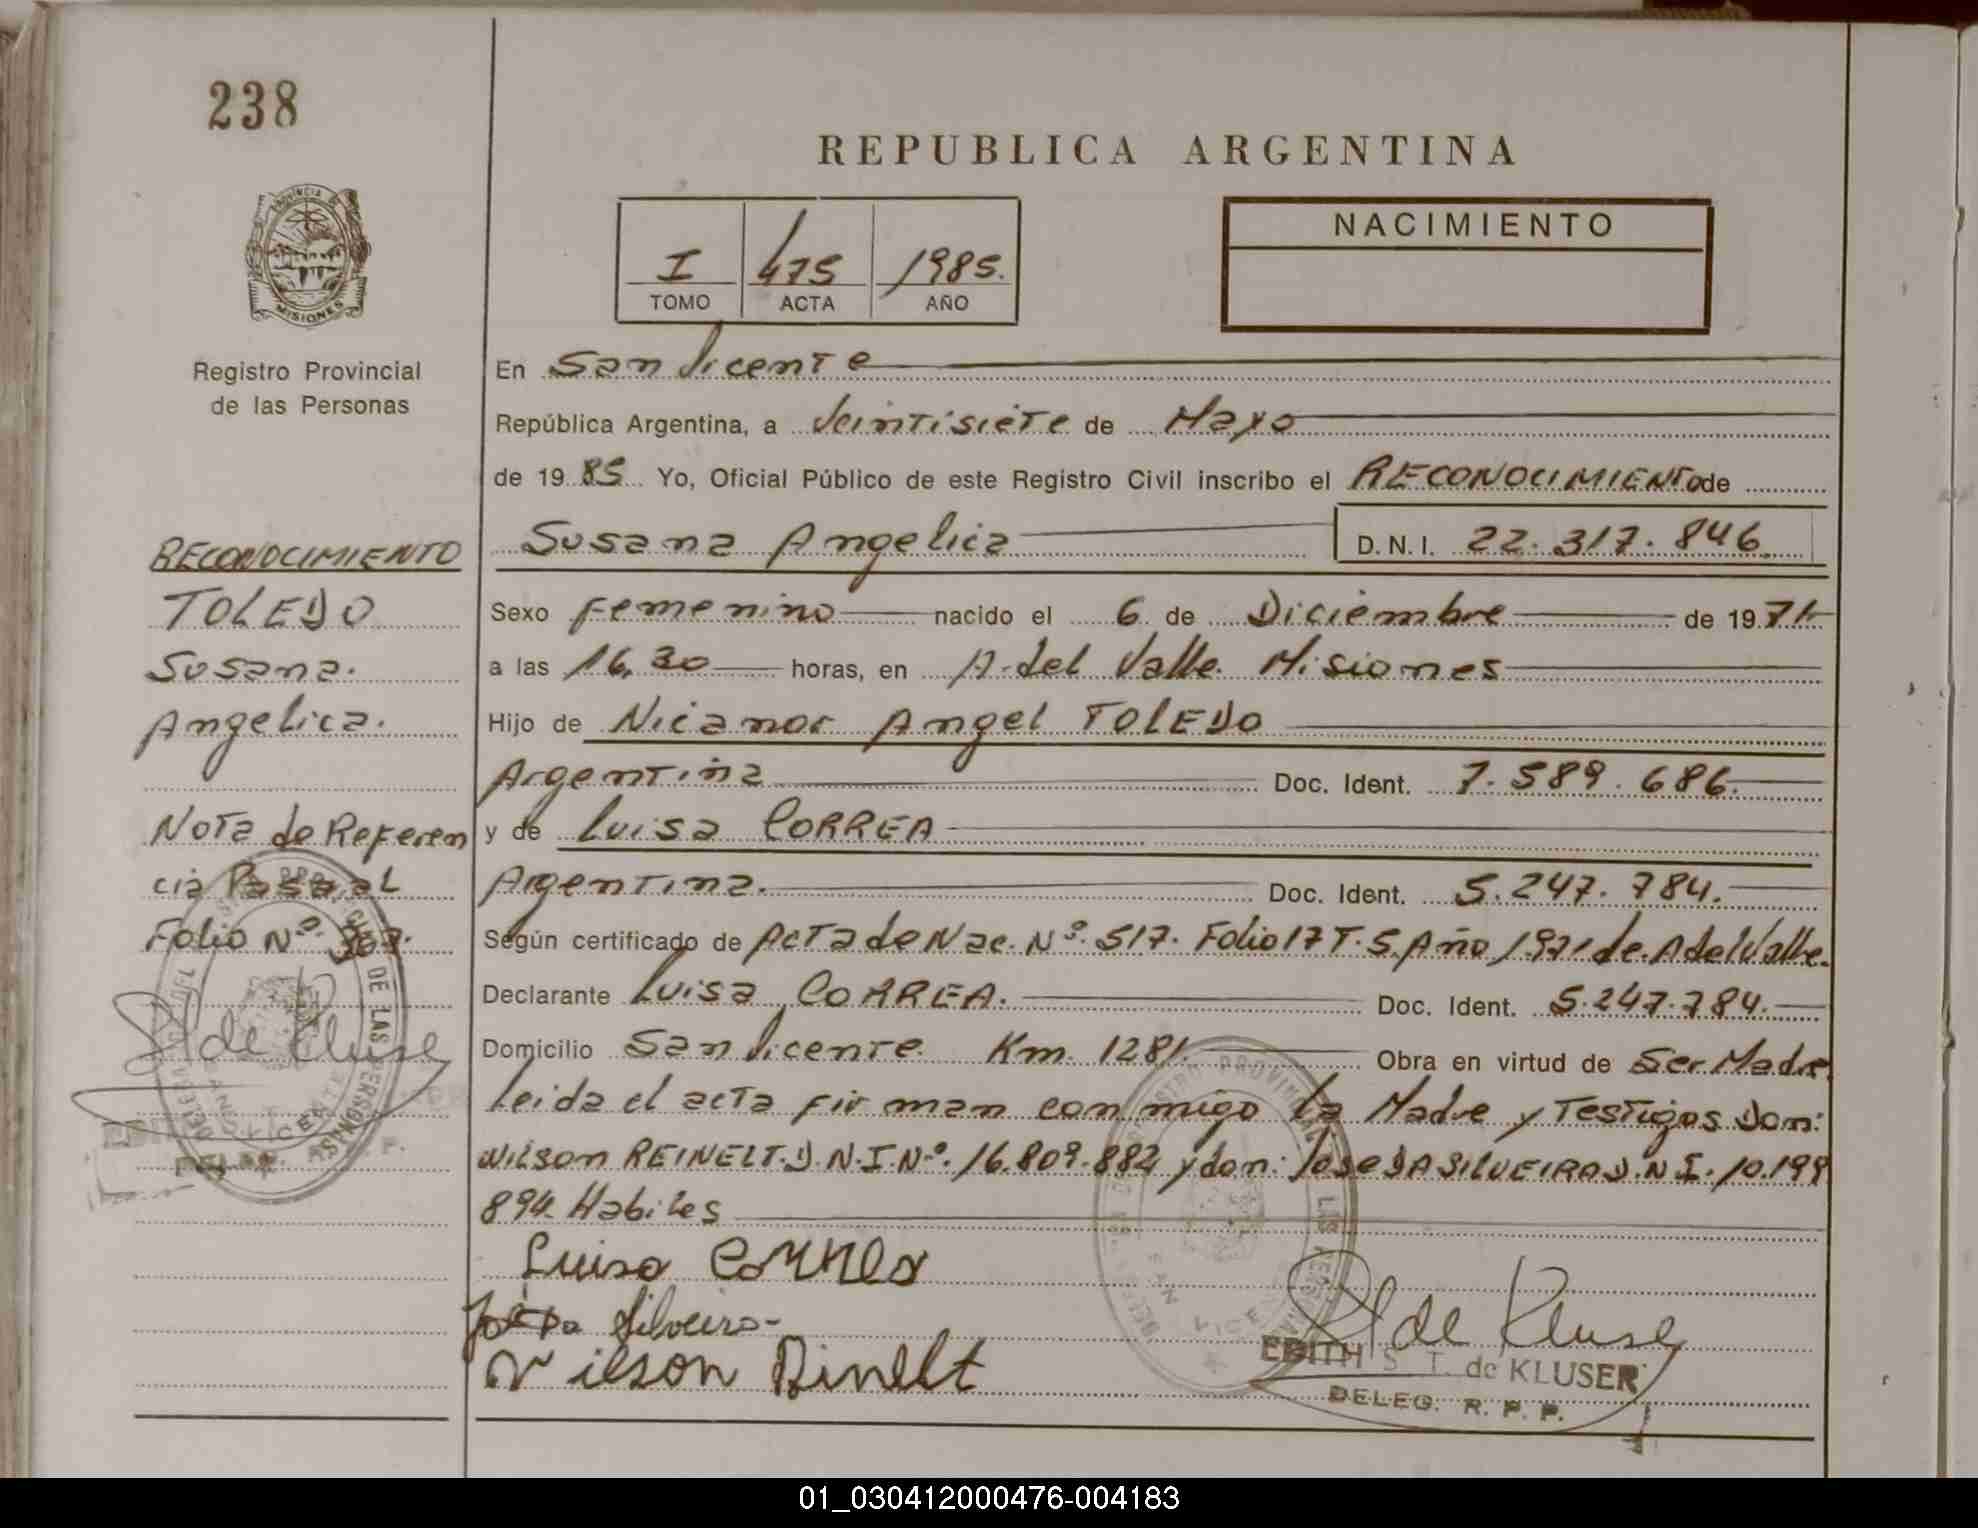 238
REPUBLICA ARGENTINA
PROVINCIA DE
MISIONES
I 475 1985.
TOMO ACTA AÑO
NACIMIENTO
Registro Provincial
de las Personas
En San Vicente
República Argentina, a Veintisiete de Mayo
de 19 85 Yo, Oficial Público de este Registro Civil inscribo el RECONOCIMIENTO de
Susana Angelica D.N.I. 22.317.846.
Sexo Femenino nacido el 6 de Diciembre de 1971
a las 16,30 horas, en A. del Valle. Misiones
Hijo de Nicanor Angel TOLEDO
Argentina Doc. Ident. 7.589.686.
y de Luisa CORREA
Argentina. Doc. Ident. 5.247.784.
Según certificado de Acta de Nac. Nº. 517. Folio 17 T. 5. Año 1971 de. A del Valle.
Declarante Luisa CORREA. Doc. Ident. 5.247.784.
Domicilio San Vicente. Km. 1281. Obra en virtud de Ser Madre
leida el acta firman conmigo la Madre y Testigos Don:
Wilson REINELT. D.N.I.Nº. 16.809.882 y don: Jose DA SILVEIRA D.N.I. 10.199
894. Habiles
Luisa Correa
José Da Silveira
Wilson Rinelt
EDITH S. T. de KLUSER
DELEG. R. P. P.
RECONOCIMIENTO
TOLEDO
Susana.
Angelica.
Nota de Referen
cia Pasa al
Folio Nº.
01_030412000476-004183